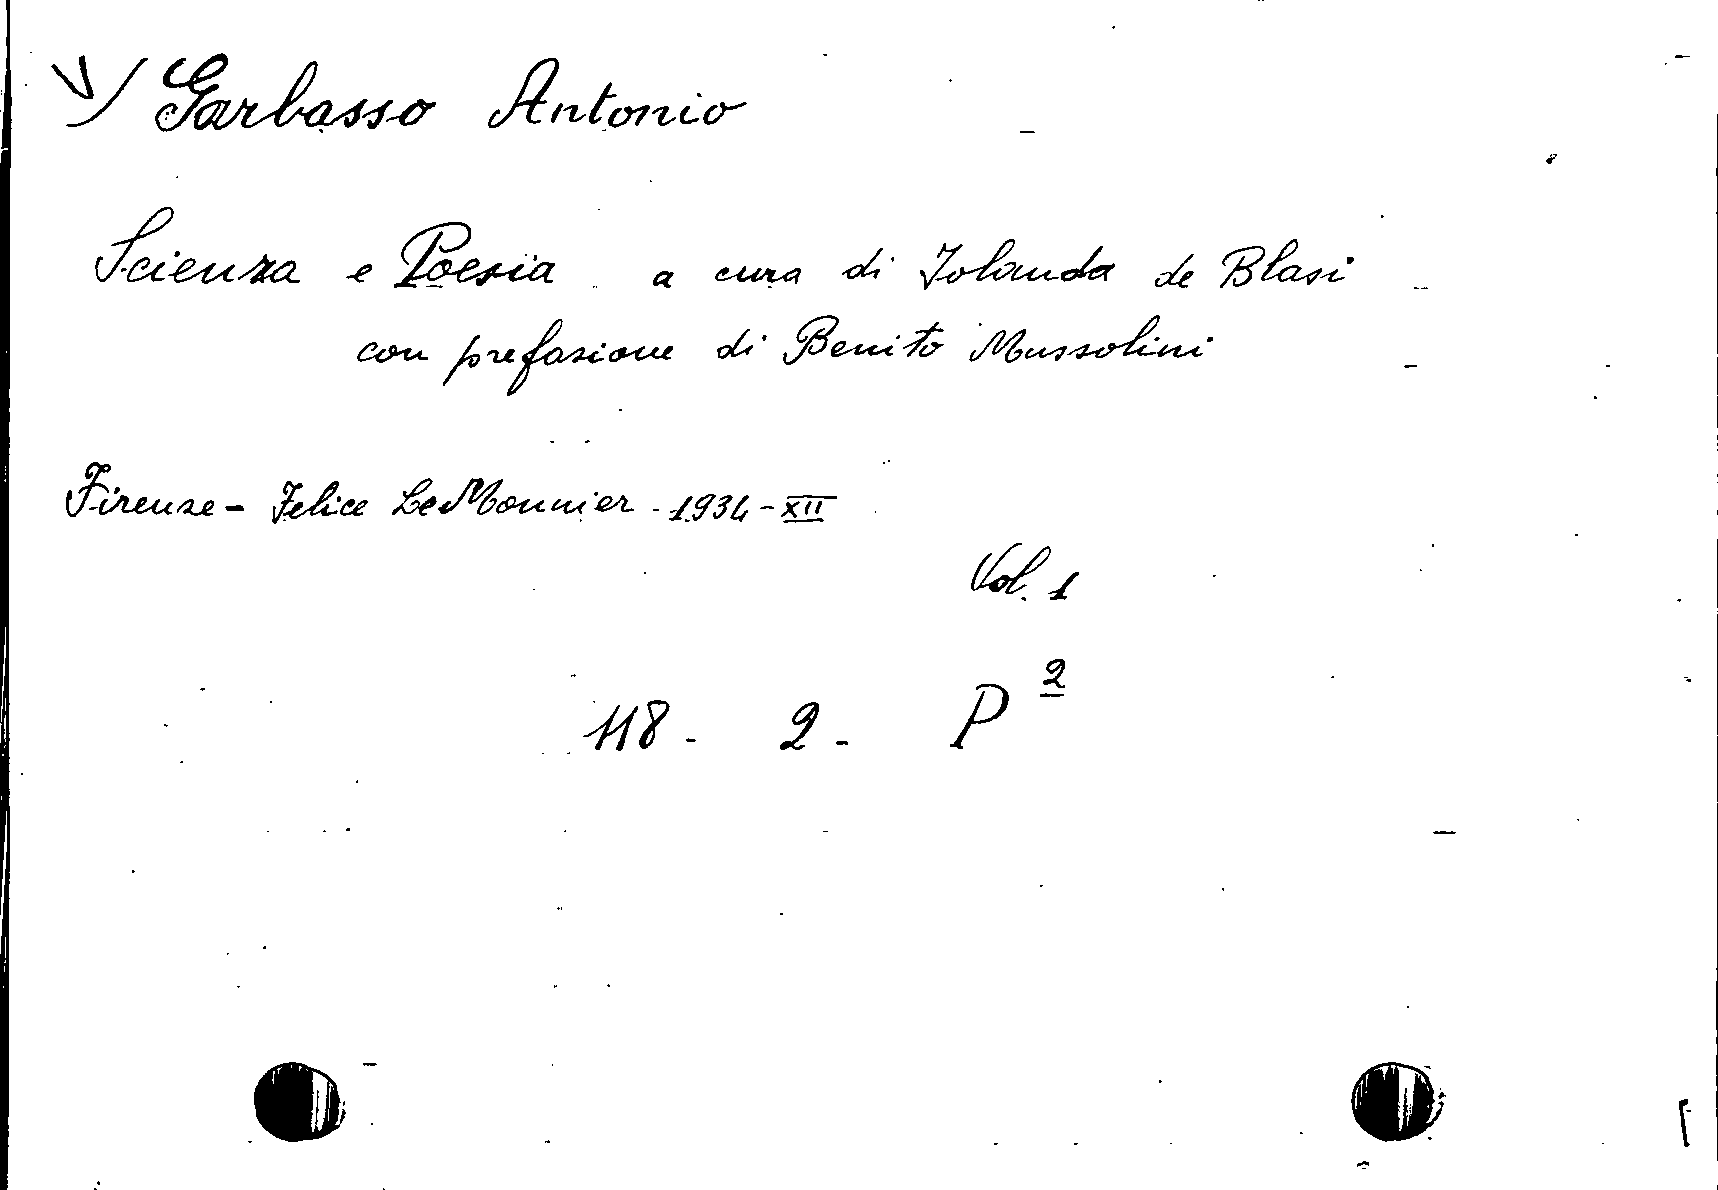 Garbasso Antonio
Scienza e Poesia a cura di Jolanda de Blasi
con prefazione di Benito Mussolini
Firenze - Felice Le Monnier - 1934 - XII
Vol. 1
118 - 2 - P 2